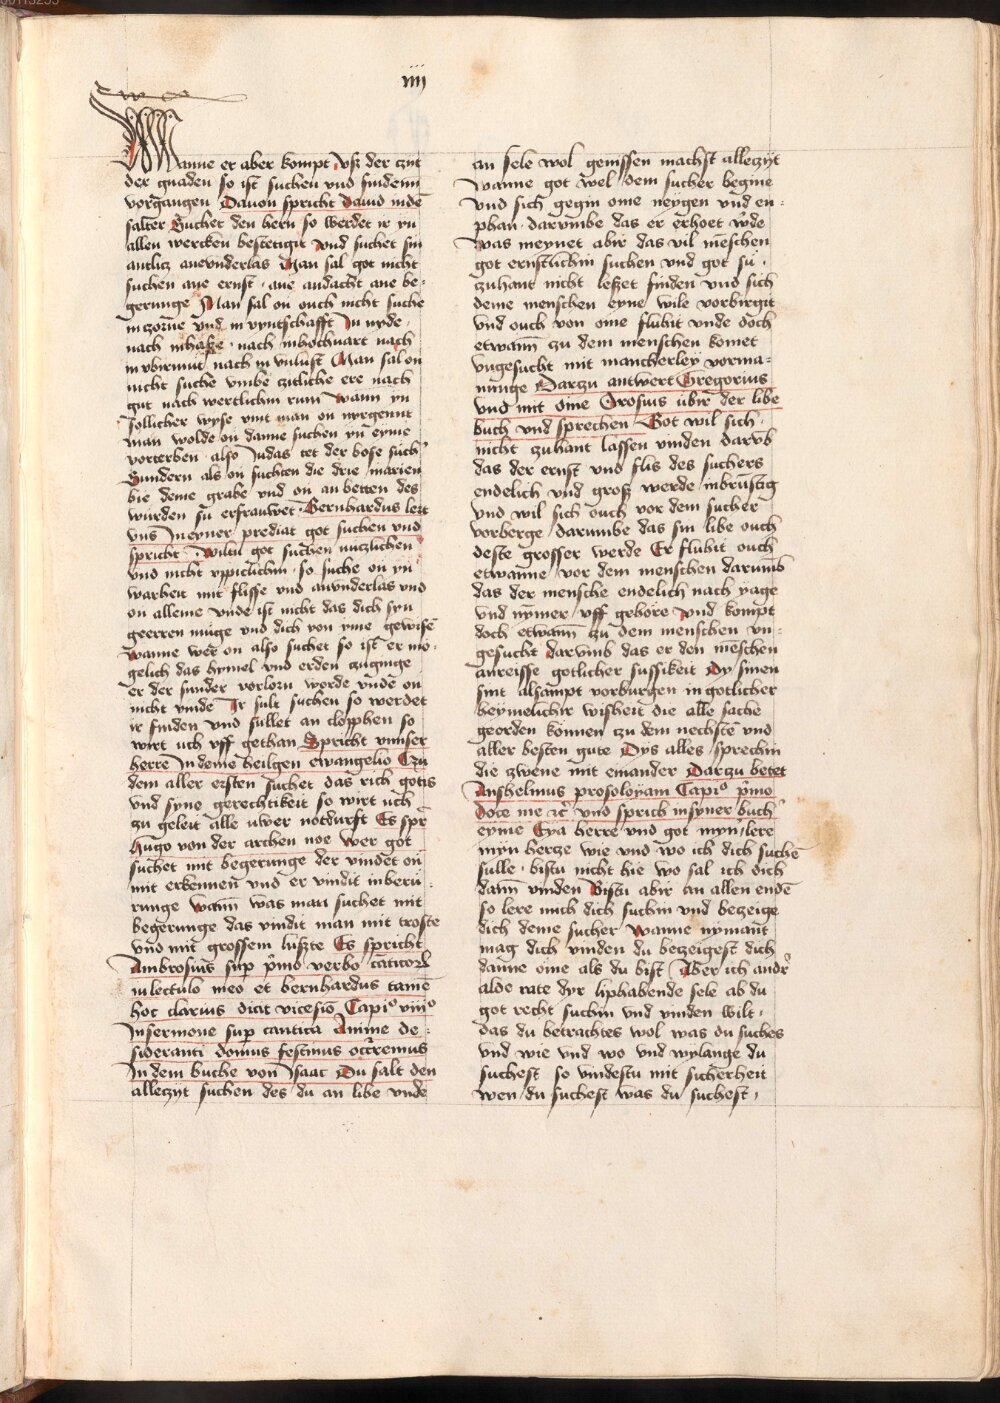 iiij
Wanne er aber kompt vß der czyt
der gnaden so ist suchen vnd finden
vorgangen Dauon spricht Dauid inde
salter Suchet den hern so werdet ir yn
allen wercken bestetigit vnd suchet sin
antlicz anevnderlas Man sal got nicht
suchen ane ernst · ane andacht ane be-
gerunge Man sal on ouch nicht suche
in zorne vnd in vyntschafft In nyde
nach inhasse · nach inhochuart nach
in vbirmut nach in vnlust Man sal on
nicht suche vmbe zitliche ere nach
gut nach wertlichin rum Wann yn
sollicher wyse vint man on nyrgennt
man wolde on danne suchen yn eyme
vorterben · also Judas tet der bose such
Sundern als on suchten die drie marien
bie deme grabe vnd on an betten des
wurden su erfrauwet · Bernhardus lert
vns In eyner prediat got suchen vnd
spricht · Wiltu got suchen nuczlichen
vnd nicht vppiclichin · so suche on yn
warheit mit flisse vnd anvnderlas vnd
on alleine vnde ist nicht das dich syn
geerren muge vnd dich von yme gewise
Wanne wer on also suchet so ist er mo-
gelich das hymel vnd erden zuginge
er der sunder vorlorn werde vnde on
nicht vinde Ir sult suchen so werdet
ir finden vnd sullet an clopphen so
wirt uch vff gethan Spricht vnnser
herre In deme heilgen ewangelio Czu
dem aller ersten suchet das rich gotis
vnd syne gerechtikeit so wirt uch
zu geleit alle uwer notdurfft Es spr
Hugo von der archen noe Wer got
suchet mit begerunge der vindet on
mit erkennen vnd er vindit inberu
runge Wann was man suchet mit
begerunge das vindit man mit troste
vnd mit grossem lußte Es spricht
Ambrosius sup pmo verbo canticor
in lectulo meo et bernhardus tame
hoc clarius dicit vicesio Capio viiio
In sermone sup cantica Anime de-
sideranti domus festinus occremus
In dem buche von Isaac Du salt den
alleczyt suchen des du an libe vnde
an sele wol genissen machst alleczyt
Wanne got wel dem sucher begine
vnd sich gegin ome neygen vnd en-
phan · darumbe das er erhoet wde
Was meynet abir das vil meschen
got ernstlichin suchen vnd got su
zuhant nicht leßet finden vnd sich
deme menschen eyne wile vorbirgit
vnd ouch von ome fluhit vnde doch
etwann zu dem menschen komet
vngesucht mit mancherley vorma-
nunge Darzu antwert Gregorius
vnd mit ome Orosius ubir der libe
buch vnd sprechen Got wil sich
nicht zuhant lassen vinden darvb
das der ernst vnd flis des suchers
endelich vnd groß werde inbrunstig
vnd wil sich ouch vor dem sucher
vorberge darumbe das sin libe ouch
deste grosser werde Er fluhit ouch
etwanne vor dem menschen darumb
das der mensche endelich nach yage
vnd nymer vff gehore vnd kompt
doch etwann zu dem menschen vn-
gesucht darvmb das er den menschen
anreisse gotlicher sussikeit Dy sinen
sint alsampt vorburgen in gotlicher
heymelicher wisheit die alle sache
geerden konnen zu dem nechsten vnd
aller besten gute Dys alles sprechin
die zwene mit einander Darzu betet
Anshelmus prosoloyam Capio pmo
doce me zc vnd sprich in syner buch
eyme Eya herre vnd got myn lere
myn hercze wie vnd wo ich dich suche
sulle · bistu nicht hie wo sal ich dich
dann vinden Bistu abir an allen ende
so lere mich dich suchin vnd beczeige
dich deme sucher Wanne nymant
mag dich vinden du beczeigest dich
danne ome als du bist Aber ich andr
alde rate dyr liphabende sele ab du
got recht suchin vnd vinden wilt
das du betrachtes wol was du suches
vnd wie vnd wo vnd wylange du
suchest so vindestu mit sicherheit
wen du suchest was du suchest